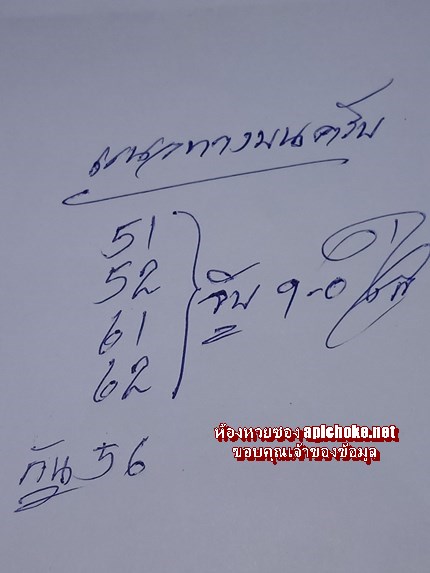 แนวทางบนครับ
51
52
61
62
จับ 9-0
กัน 56
ห้องหวยซอง apichoke.net
ขอบคุณเจ้าของข้อมูล